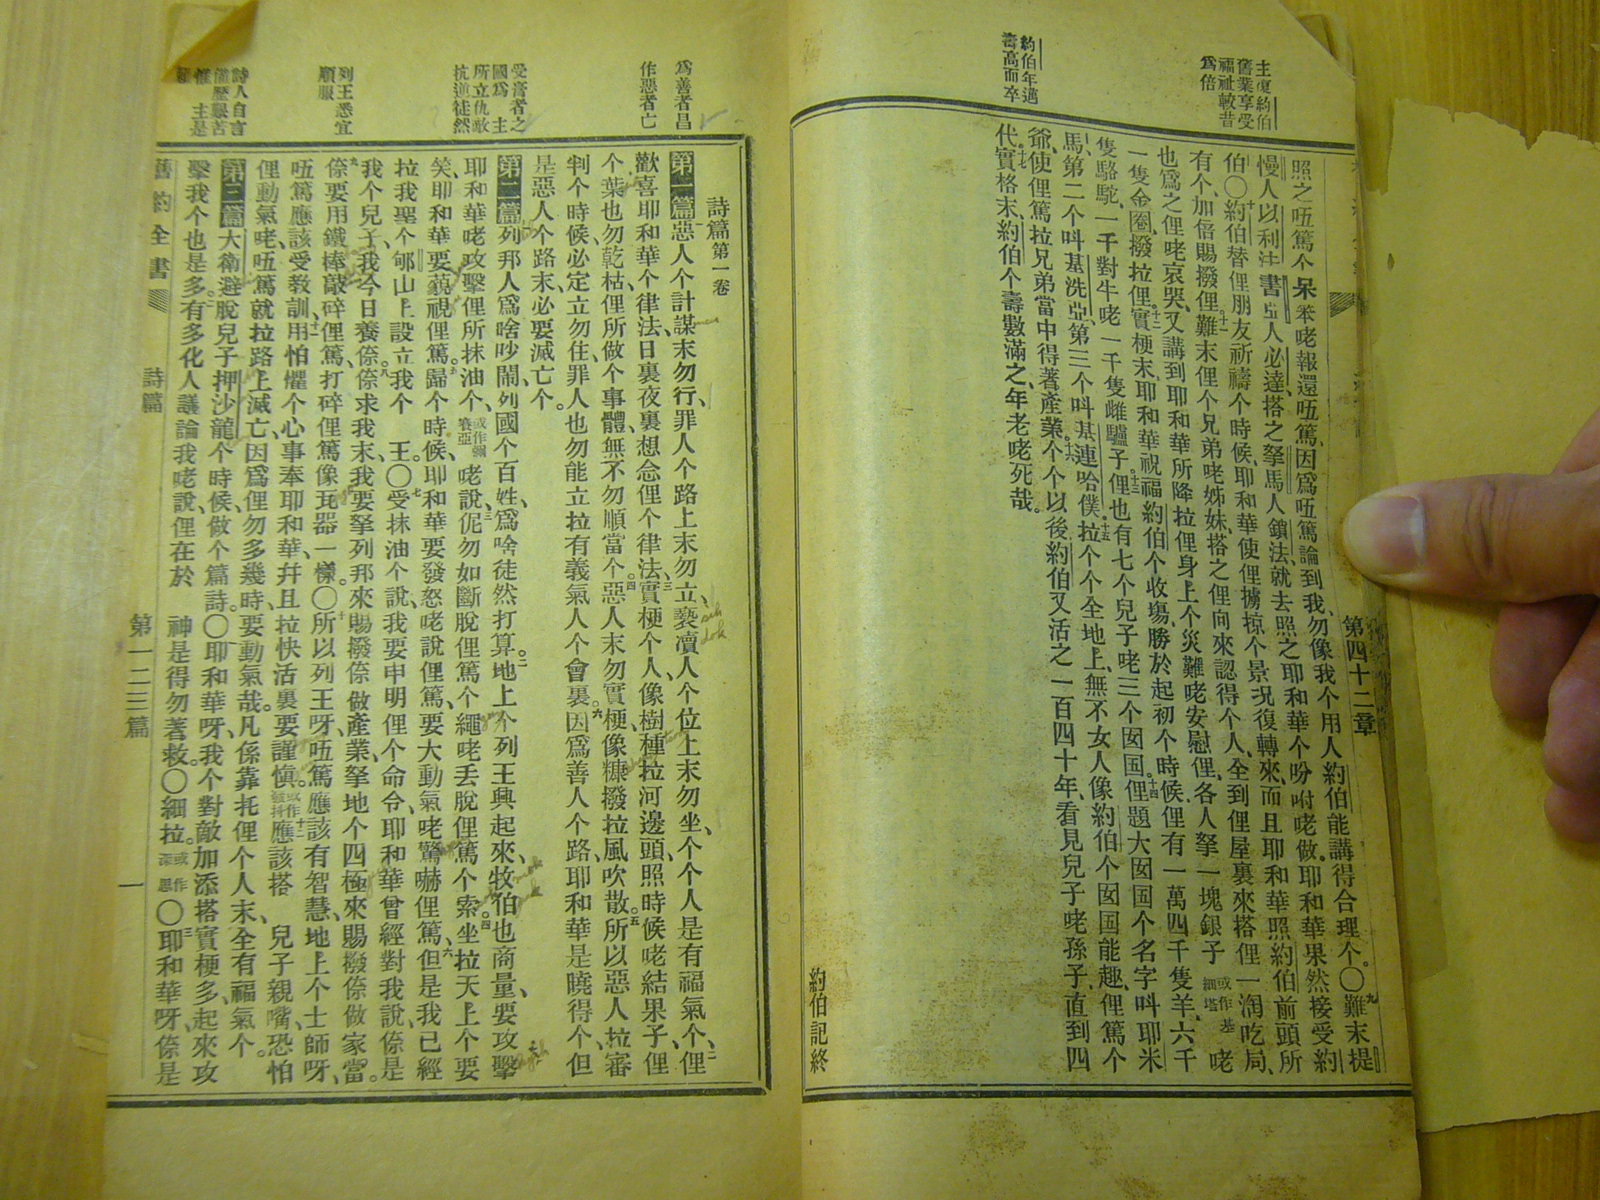 主復約伯
舊業享受
福祉較昔
爲倍
約伯年邁
壽高而卒
第四十二章
照之㕶篤个呆笨咾報還㕶篤、因爲㕶篤論到我、勿像我个用人約伯能講得合理个。〇九難末提
慢人以利法書亞人必達、搭之拏馬人鎖法、就去照之耶和華个吩咐咾做。耶和華果然接受約
伯〇十約伯替俚朋友祈禱个時候、耶和華使俚擄掠个景況復轉來、而且耶和華照約伯前頭所
有个、加倍賜撥俚。十一難末俚个兄弟咾姊妹、搭之俚向來認得个人、全到俚屋裏來搭俚一淘吃局、
也爲之俚咾哀哭、又講到耶和華所降拉俚身上个災難咾安慰俚、各人拏一塊銀子 咾
一隻金圈撥拉俚。十二實梗末、耶和華祝福約伯个收塲、勝於起初个時候、俚有一萬四千隻羊、六千
隻駱駝、一千對牛咾一千隻雌驢子。十三俚也有七个兒子咾三个囡囝。十四俚題大囡囝个名字呌耶米
馬、第二个呌基洗亞、第三个呌基連哈僕。十五拉个个全地上、無不女人像約伯个囡囝能趣、俚篤个
爺、使俚篤拉兄弟當中得著產業。十六个个以後、約伯又活之一百四十年、看見兒子咾孫子、直到四
代。十七實格末、約伯个壽數滿之、年老咾死哉。
約伯記終
爲善者昌
作惡者亡
受膏者之
國爲 主
所立仇敵
抗逆徒然
列王悉宜
順服
詩人自言
詩篇第一卷
第一篇 惡人个計謀末勿行、罪人个路上末勿立、褻瀆人个位上末勿坐、个个人是有福氣个、二俚
歡喜耶和華个律法、日裏夜裏想念俚个律法。三實梗个人、像樹種拉河邊頭、照時候咾結果子、俚
个葉也勿乾枯、俚所做个事體、無不勿順當个。四惡人末勿實梗、像糠撥拉風吹散。五所以惡人拉審
判个時候、必定立勿住、罪人也勿能立拉有義氣人个會裏。六因爲善人个路、耶和華是曉得个、但
是惡人个路末必要滅亡个。
第二篇 列邦人爲啥吵鬧、列國个百姓、爲啥徒然打算。二地上个列王興起來、牧伯也商量、要攻擊
耶和華咾攻擊俚所抹油个、 咾說、三伲勿如斷脫俚篤个繩、咾丟脫俚篤个索。四坐拉天上个要
笑、耶和華要藐視俚篤。五歸个時候、耶和華要發怒咾說俚篤、要大動氣咾驚嚇俚篤。六但是我已經
拉我聖个郇山上設立我个 王。〇七受抹油个說、我要申明俚个命令、耶和華曾經對我說、倷是
我个兒子、我今日養倷。八倷求我末、我要拏列邦來賜撥倷做產業、拏地个四極來賜撥倷做家當。
九倷要用鐵棒敲碎俚篤、打碎俚篤像瓦器一樣。〇十所以列王呀、㕶篤應該有智慧、地上个士師呀、
㕶篤應該受敎訓。十一用怕懼个心事奉耶和華、幷且拉快活裏要謹愼。 十二應該搭 兒子親嘴、恐怕
俚動氣咾㕶篤就拉路上滅亡、因爲俚勿多幾時、要動氣哉。凡係靠托俚个人末、全有福氣个。
第三篇 大衛避脫兒子押沙龍个時候、做个篇詩。〇耶和華呀、我个對敵加添搭實梗多、起來攻
擊我个也是多。二有多化人議論我咾說、俚在於 神是得勿著救。〇細拉。 〇三耶和華呀、倷是
舊約全書
詩篇
第一二三篇
一